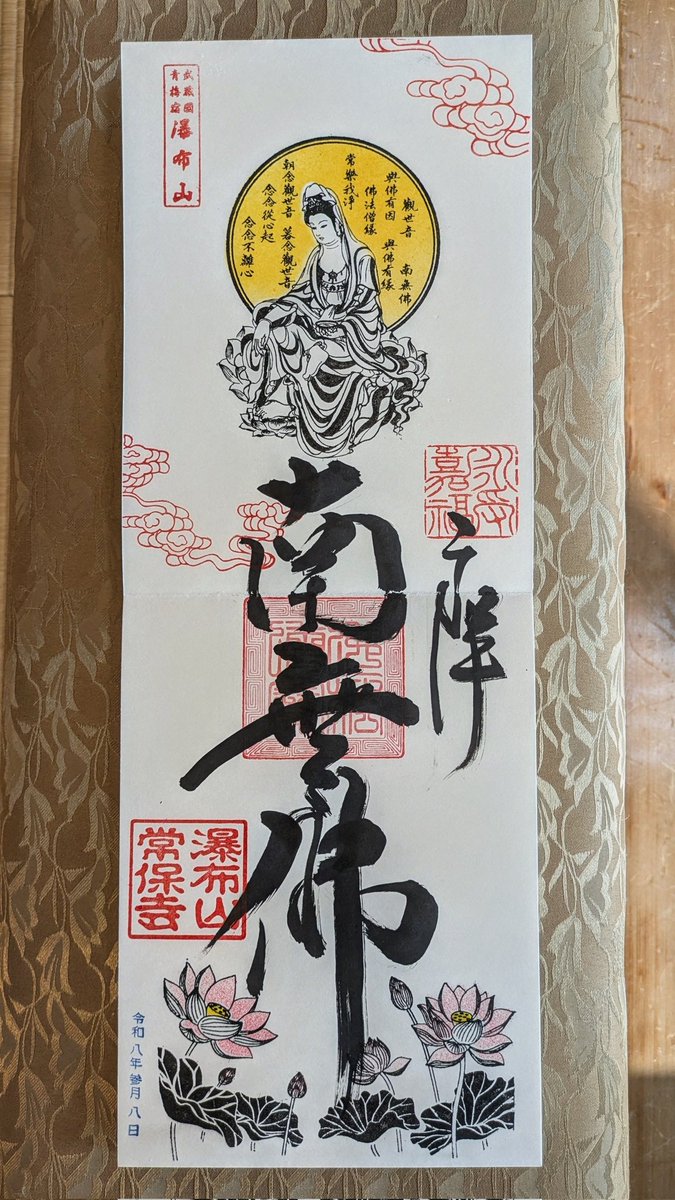 武蔵國
青梅宿
瀑布山
觀世音 南無佛
與佛有因 與佛有緣
佛法僧緣
常樂我淨
朝念觀世音 暮念觀世音
念念從心起
念念不離心
永受
嘉福
南無佛
瀑布山
常保寺
令和八年参月八日